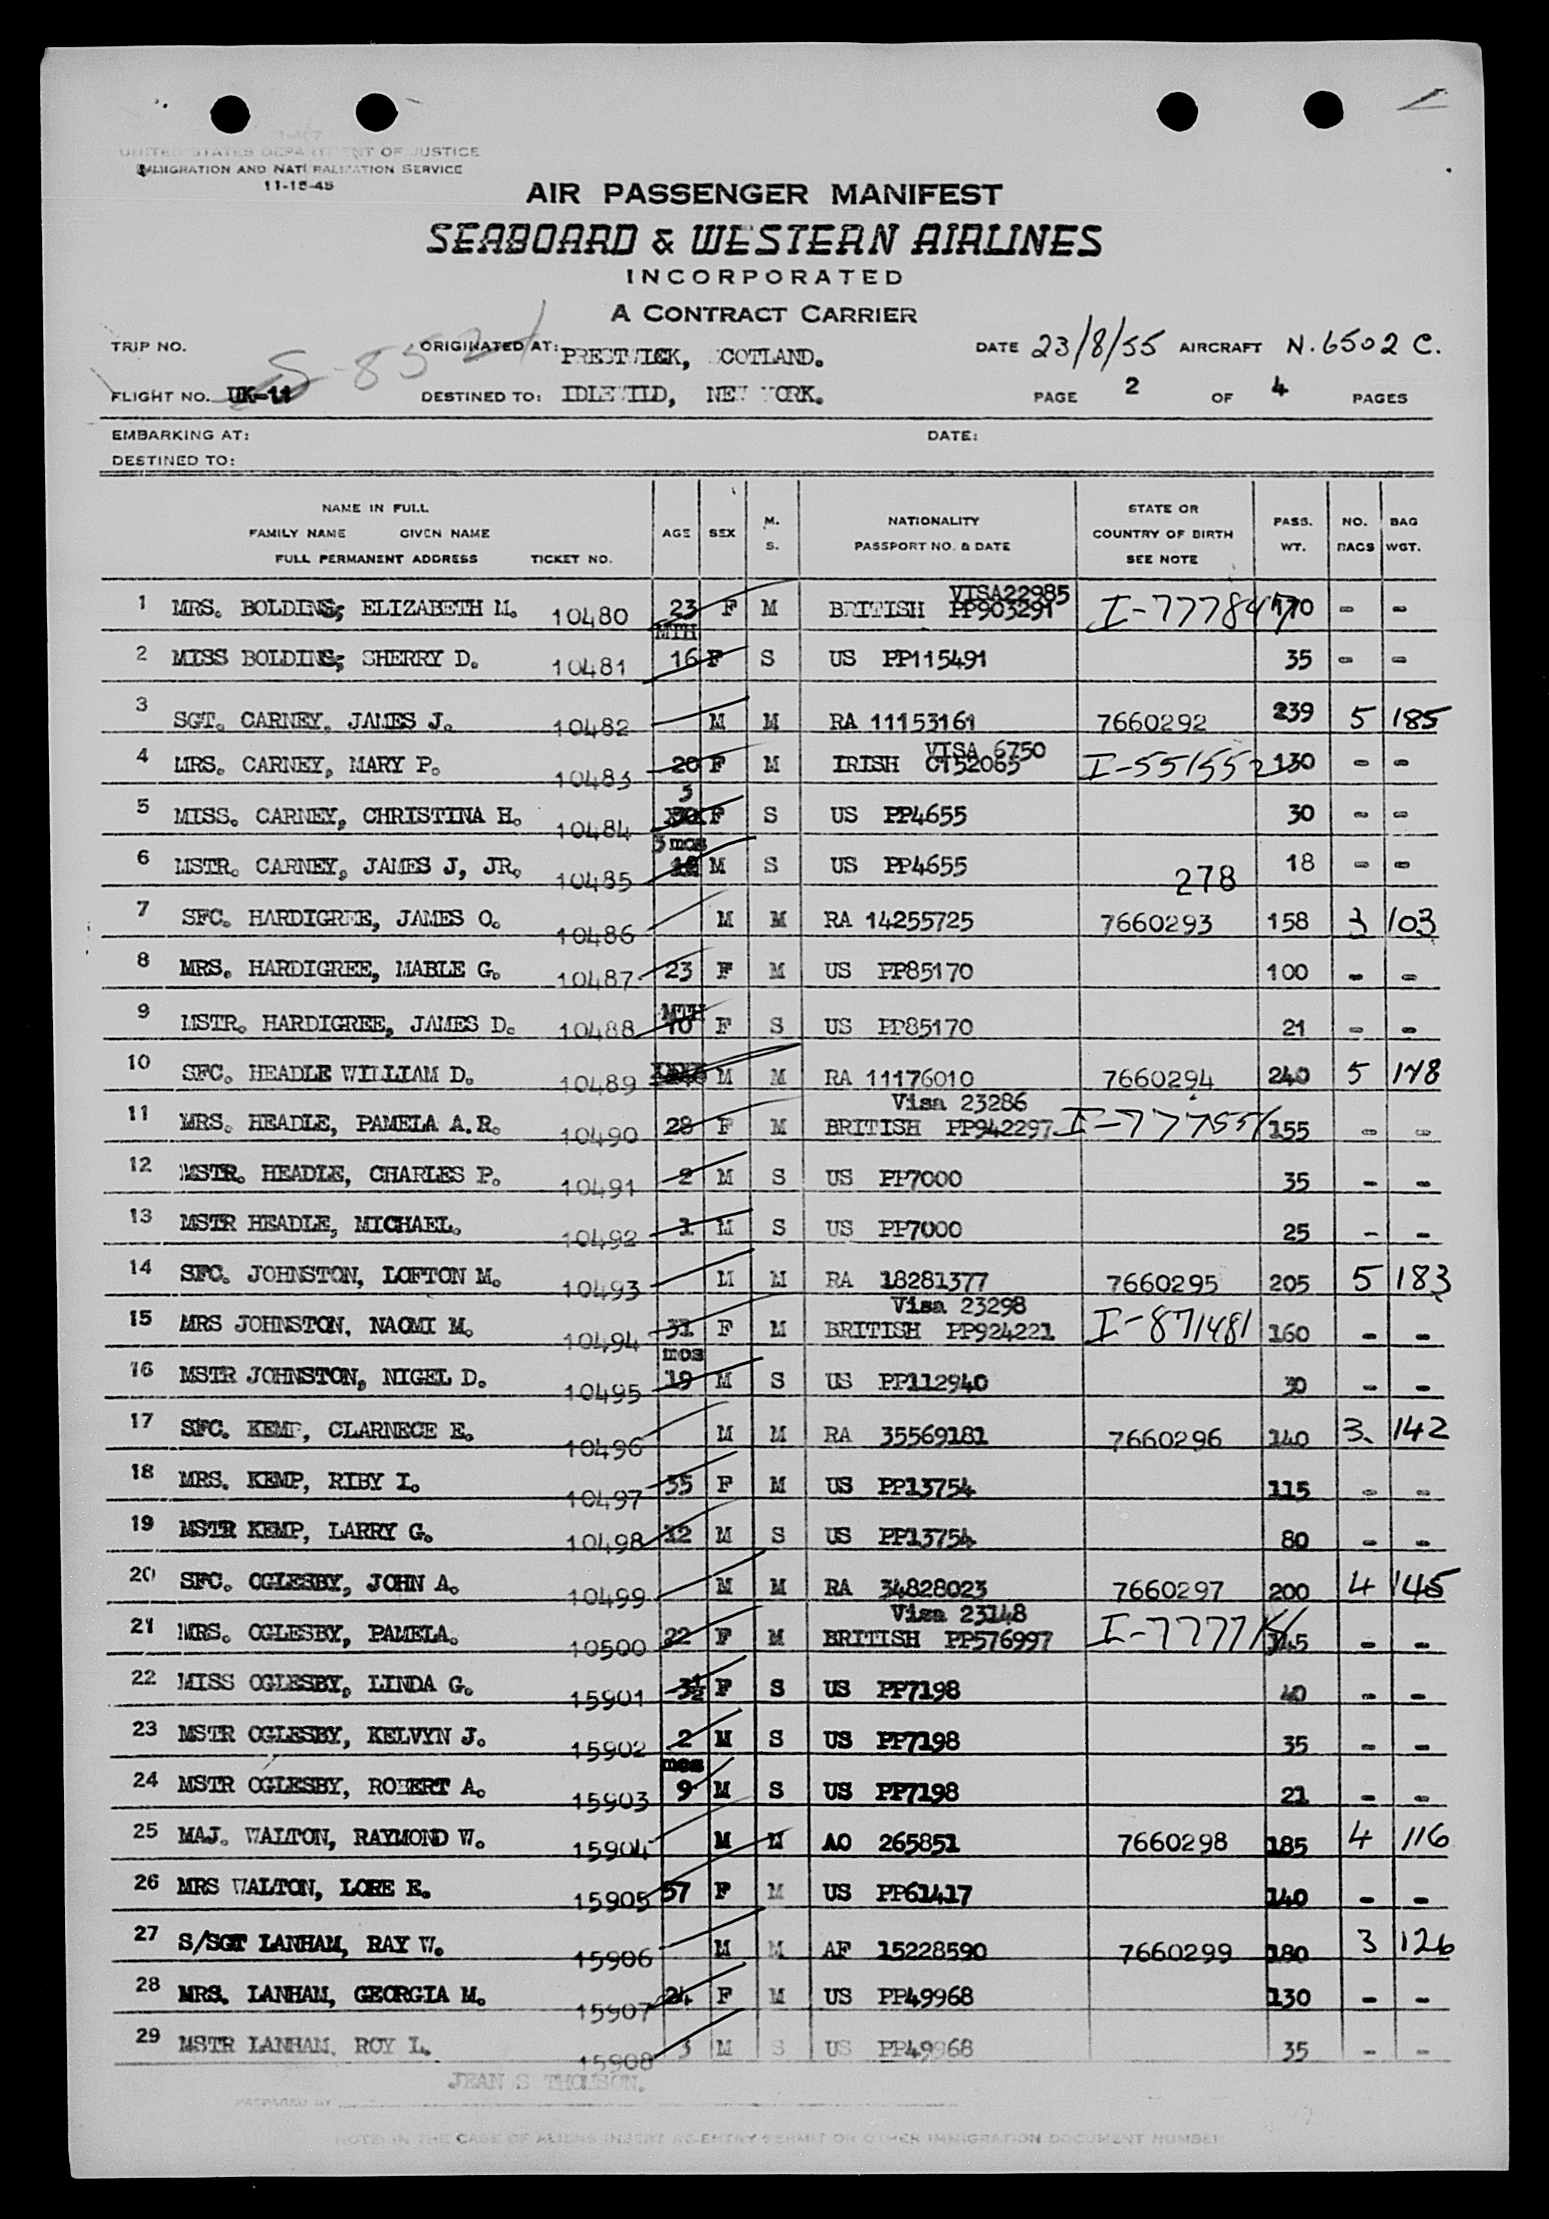 UNITED STATES DEPARTMENT OF JUSTICE
IMMIGRATION AND NATURALIZATION SERVICE
11-15-45
AIR PASSENGER MANIFEST
SEABOARD & WESTERN AIRLINES
INCORPORATED
A CONTRACT CARRIER
TRIP NO. ORIGINATED AT: PRESTWICK, SCOTLAND. DATE 23/8/55 AIRCRAFT N.6502 C.
S-8552
FLIGHT NO. UK-11 DESTINED TO: IDLEWILD, NEW YORK. PAGE 2 OF 4 PAGES
EMBARKING AT: DATE:
DESTINED TO:
NAME IN FULL
FAMILY NAME GIVEN NAME
FULL PERMANENT ADDRESS TICKET NO. AGE SEX M. S. NATIONALITY PASSPORT NO. & DATE STATE OR COUNTRY OF BIRTH SEE NOTE PASS. WT. NO. BAGS BAG WGT.
VISA22985
1 MRS. BOLDING, ELIZABETH M. 10480 23 F M BRITISH PP903291 I-777847 170 - -
MTH
2 MISS BOLDING, SHERRY D. 10481 16 F S US PP115491 35 - -
3 SGT. CARNEY, JAMES J. 10482 M M RA 11153161 7660292 239 5 185
VISA 6750
4 MRS. CARNEY, MARY P. 10483 20 F M IRISH C152065 I-551552 130 - -
5 MISS. CARNEY, CHRISTINA H. 10484 3 F S US PP4655 30 - -
3 mos
6 MSTR. CARNEY, JAMES J, JR. 10485 M S US PP4655 278 18 - -
7 SFC. HARDIGREE, JAMES O. 10486 M M RA 14255725 7660293 158 3 103
8 MRS. HARDIGREE, MABLE G. 10487 23 F M US PP85170 100 - -
MTH
9 MSTR. HARDIGREE, JAMES D. 10488 10 F S US PP85170 21 - -
10 SFC. HEADLE WILLIAM D. 10489 M M RA 11176010 7660294 240 5 148
Visa 23286
11 MRS. HEADLE, PAMELA A.R. 10490 28 F M BRITISH PP942297 I-777551 155 - -
12 MSTR. HEADLE, CHARLES P. 10491 2 M S US PP7000 35 - -
13 MSTR HEADLE, MICHAEL. 10492 1 M S US PP7000 25 - -
14 SFC. JOHNSTON, LOFTON M. 10493 M M RA 18281377 7660295 205 5 183
Visa 23298
15 MRS JOHNSTON, NAOMI M. 10494 31 F M BRITISH PP924221 I-871481 160 - -
mos
16 MSTR JOHNSTON, NIGEL D. 10495 19 M S US PP112940 30 - -
17 SFC. KEMP, CLARNECE E. 10496 M M RA 35569181 7660296 140 3. 142
18 MRS. KEMP, RIBY I. 10497 35 F M US PP13754 115 - -
19 MSTR KEMP, LARRY G. 10498 12 M S US PP13754 80 - -
20 SFC. OGLESBY, JOHN A. 10499 M M RA 34828023 7660297 200 4 145
Visa 23148
21 MRS. OGLESBY, PAMELA. 10500 22 F M BRITISH PP576997 145 - -
22 MISS OGLESBY, LINDA G. 15901 3½ F S US PP7198 40 - -
23 MSTR OGLESBY, KELVYN J. 15902 2 M S US PP7198 35 - -
mos
24 MSTR OGLESBY, ROBERT A. 15903 9 M S US PP7198 21 - -
25 MAJ. WALTON, RAYMOND W. 15904 M M AO 265851 7660298 185 4 116
26 MRS WALTON, LORE E. 15905 37 F M US PP61417 140 - -
27 S/SGT LANHAM, RAY W. 15906 M M AF 15228590 7660299 180 3 126
28 MRS. LANHAM, GEORGIA M. 15907 24 F M US PP49968 130 - -
29 MSTR LANHAM, ROY L. 15908 3 M S US PP49968 35 - -
JEAN S THOMSON.
PREPARED BY
NOTE: IN THE CASE OF ALIENS INSERT RE-ENTRY PERMIT OR OTHER IMMIGRATION DOCUMENT NUMBER